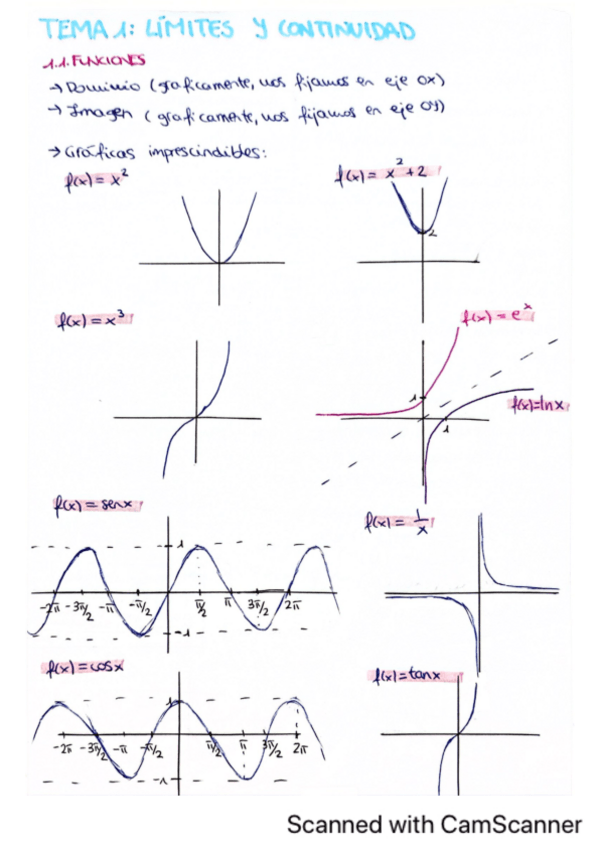 TEMA 1: LÍMITES Y CONTINUIDAD
1.1. FUNCIONES
→ Dominio (graficamente, nos fijamos en eje OX)
→ Imagen (graficamente, nos fijamos en eje OY)
→ Gráficas imprescindibles:
f(x) = x²
f(x) = x² + 2
2
f(x) = x³
f(x) = eˣ
1
f(x) = lnx
1
f(x) = senx
1
-2π -3π/2 -π -π/2 π/2 π 3π/2 2π
-1
f(x) = 1/x
f(x) = cosx
1
-2π -3π/2 -π -π/2 π/2 π 3π/2 2π
-1
f(x) = tanx
Scanned with CamScanner